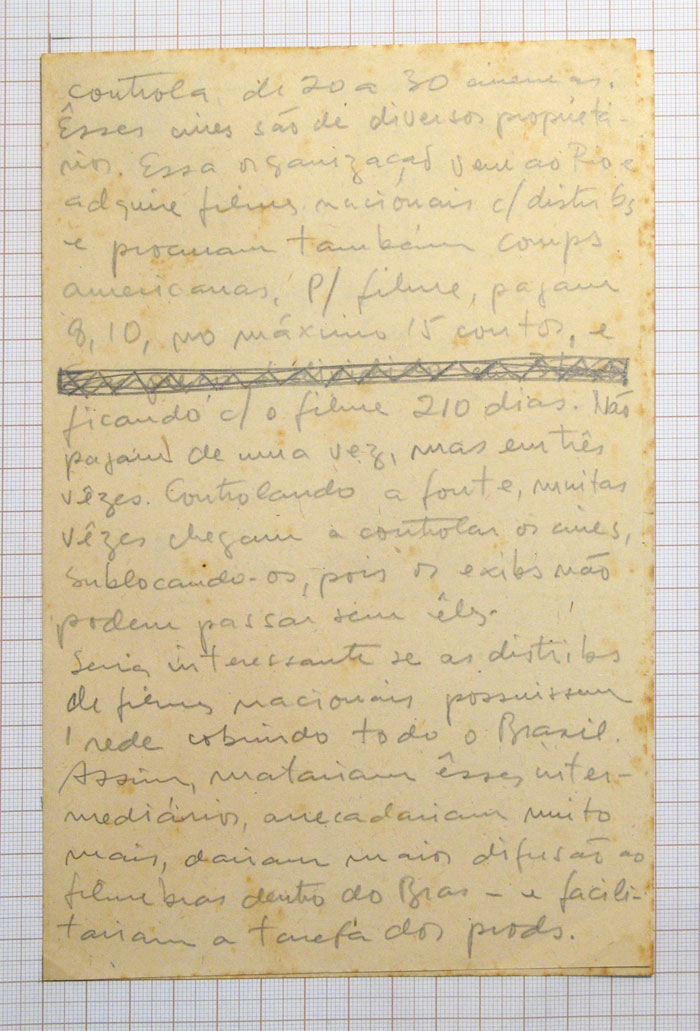 controla de 20 a 30 cinemas.
Êsses cines são de diversos proprietá-
rios. Essa organização vem ao Rio e
adquire filmes nacionais c/ distribs
e procuram também comps
americanas. P/ filme, pagam
8, 10, no máximo 15 contos, e
ficando c/ o filme 210 dias. Não
pagam de uma vez, mas em três
vêzes. Controlando a fonte, muitas
vêzes chegam a controlar os cines,
sublocando-os, pois os exibs não
podem passar sem êles.
Seria interessante se as distribs
de filmes nacionais possuissem
1 rede cobrindo todo o Brasil.
Assim, matariam êsses inter-
mediários, arrecadariam muito
mais, dariam maior difusão ao
filme bras dentro do Bras - e facili-
tariam a tarefa dos prods.